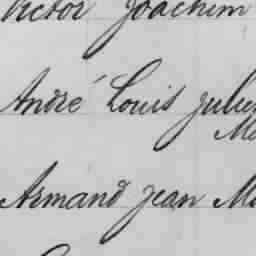 Victor Joachim
André Louis Julien
Armand Jean